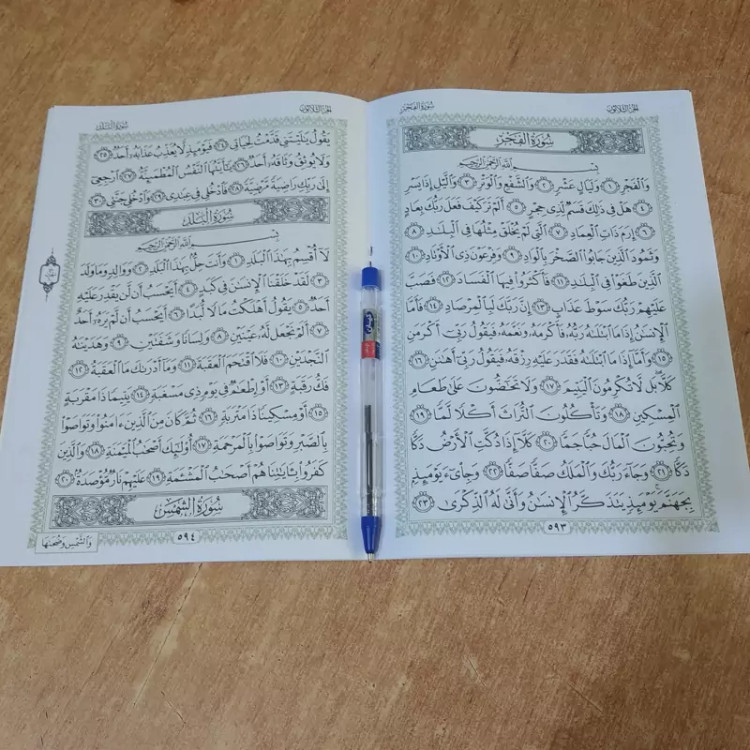 سُورَةُ الفَجْرِ
الجزء الثلاثون
سُورَةُ الفَجْرِ
بِسْمِ اللَّهِ الرَّحْمَٰنِ الرَّحِيمِ
وَالْفَجْرِ ١ وَلَيَالٍ عَشْرٍ ٢ وَالشَّفْعِ وَالْوَتْرِ ٣ وَاللَّيْلِ إِذَا يَسْرِ
٤ هَلْ فِي ذَٰلِكَ قَسَمٌ لِّذِي حِجْرٍ ٥ أَلَمْ تَرَ كَيْفَ فَعَلَ رَبُّكَ بِعَادٍ
٦ إِرَمَ ذَاتِ الْعِمَادِ ٧ الَّتِي لَمْ يُخْلَقْ مِثْلُهَا فِي الْبِلَٰدِ ٨
وَثَمُودَ الَّذِينَ جَابُوا الصَّخْرَ بِالْوَادِ ٩ وَفِرْعَوْنَ ذِي الْأَوْتَادِ ١٠
الَّذِينَ طَغَوْا فِي الْبِلَٰدِ ١١ فَأَكْثَرُوا فِيهَا الْفَسَادَ ١٢ فَصَبَّ
عَلَيْهِمْ رَبُّكَ سَوْطَ عَذَابٍ ١٣ إِنَّ رَبَّكَ لَبِالْمِرْصَادِ ١٤ فَأَمَّا
الْإِنسَٰنُ إِذَا مَا ابْتَلَىٰهُ رَبُّهُ فَأَكْرَمَهُ وَنَعَّمَهُ فَيَقُولُ رَبِّي أَكْرَمَنِ
١٥ وَأَمَّا إِذَا مَا ابْتَلَىٰهُ فَقَدَرَ عَلَيْهِ رِزْقَهُ فَيَقُولُ رَبِّي أَهَٰنَنِ ١٦
كَلَّا بَل لَّا تُكْرِمُونَ الْيَتِيمَ ١٧ وَلَا تَحَٰضُّونَ عَلَىٰ طَعَامِ
الْمِسْكِينِ ١٨ وَتَأْكُلُونَ التُّرَاثَ أَكْلًا لَّمًّا ١٩
وَتُحِبُّونَ الْمَالَ حُبًّا جَمًّا ٢٠ كَلَّا إِذَا دُكَّتِ الْأَرْضُ دَكًّا
دَكًّا ٢١ وَجَاءَ رَبُّكَ وَالْمَلَكُ صَفًّا صَفًّا ٢٢ وَجِايءَ يَوْمَئِذٍ
بِجَهَنَّمَ يَوْمَئِذٍ يَتَذَكَّرُ الْإِنسَٰنُ وَأَنَّىٰ لَهُ الذِّكْرَىٰ ٢٣
٥٩٣
الجزء الثلاثون
سُورَةُ البَلَدِ
يَقُولُ يَٰلَيْتَنِي قَدَّمْتُ لِحَيَاتِي ٢٤ فَيَوْمَئِذٍ لَّا يُعَذِّبُ عَذَابَهُ أَحَدٌ ٢٥
وَلَا يُوثِقُ وَثَاقَهُ أَحَدٌ ٢٦ يَٰأَيَّتُهَا النَّفْسُ الْمُطْمَئِنَّةُ ٢٧ ارْجِعِي
إِلَىٰ رَبِّكِ رَاضِيَةً مَّرْضِيَّةً ٢٨ فَادْخُلِي فِي عِبَٰدِي ٢٩ وَادْخُلِي جَنَّتِي ٣٠
سُورَةُ البَلَدِ
بِسْمِ اللَّهِ الرَّحْمَٰنِ الرَّحِيمِ
لَا أُقْسِمُ بِهَٰذَا الْبَلَدِ ١ وَأَنتَ حِلٌّ بِهَٰذَا الْبَلَدِ ٢ وَوَالِدٍ وَمَا وَلَدَ
٣ لَقَدْ خَلَقْنَا الْإِنسَٰنَ فِي كَبَدٍ ٤ أَيَحْسَبُ أَن لَّن يَقْدِرَ عَلَيْهِ
أَحَدٌ ٥ يَقُولُ أَهْلَكْتُ مَالًا لُّبَدًا ٦ أَيَحْسَبُ أَن لَّمْ يَرَهُ أَحَدٌ
٧ أَلَمْ نَجْعَل لَّهُ عَيْنَيْنِ ٨ وَلِسَانًا وَشَفَتَيْنِ ٩ وَهَدَيْنَٰهُ
النَّجْدَيْنِ ١٠ فَلَا اقْتَحَمَ الْعَقَبَةَ ١١ وَمَا أَدْرَىٰكَ مَا الْعَقَبَةُ ١٢
فَكُّ رَقَبَةٍ ١٣ أَوْ إِطْعَٰمٌ فِي يَوْمٍ ذِي مَسْغَبَةٍ ١٤ يَتِيمًا ذَا مَقْرَبَةٍ
١٥ أَوْ مِسْكِينًا ذَا مَتْرَبَةٍ ١٦ ثُمَّ كَانَ مِنَ الَّذِينَ ءَامَنُوا وَتَوَاصَوْا
بِالصَّبْرِ وَتَوَاصَوْا بِالْمَرْحَمَةِ ١٧ أُولَٰئِكَ أَصْحَٰبُ الْمَيْمَنَةِ ١٨ وَالَّذِينَ
كَفَرُوا بِـَٔايَٰتِنَا هُمْ أَصْحَٰبُ الْمَشْـَٔمَةِ ١٩ عَلَيْهِمْ نَارٌ مُّؤْصَدَةٌ ٢٠
سُورَةُ الشَّمْسِ
٥٩٤
وَالشَّمْسِ وَضُحَىٰهَا